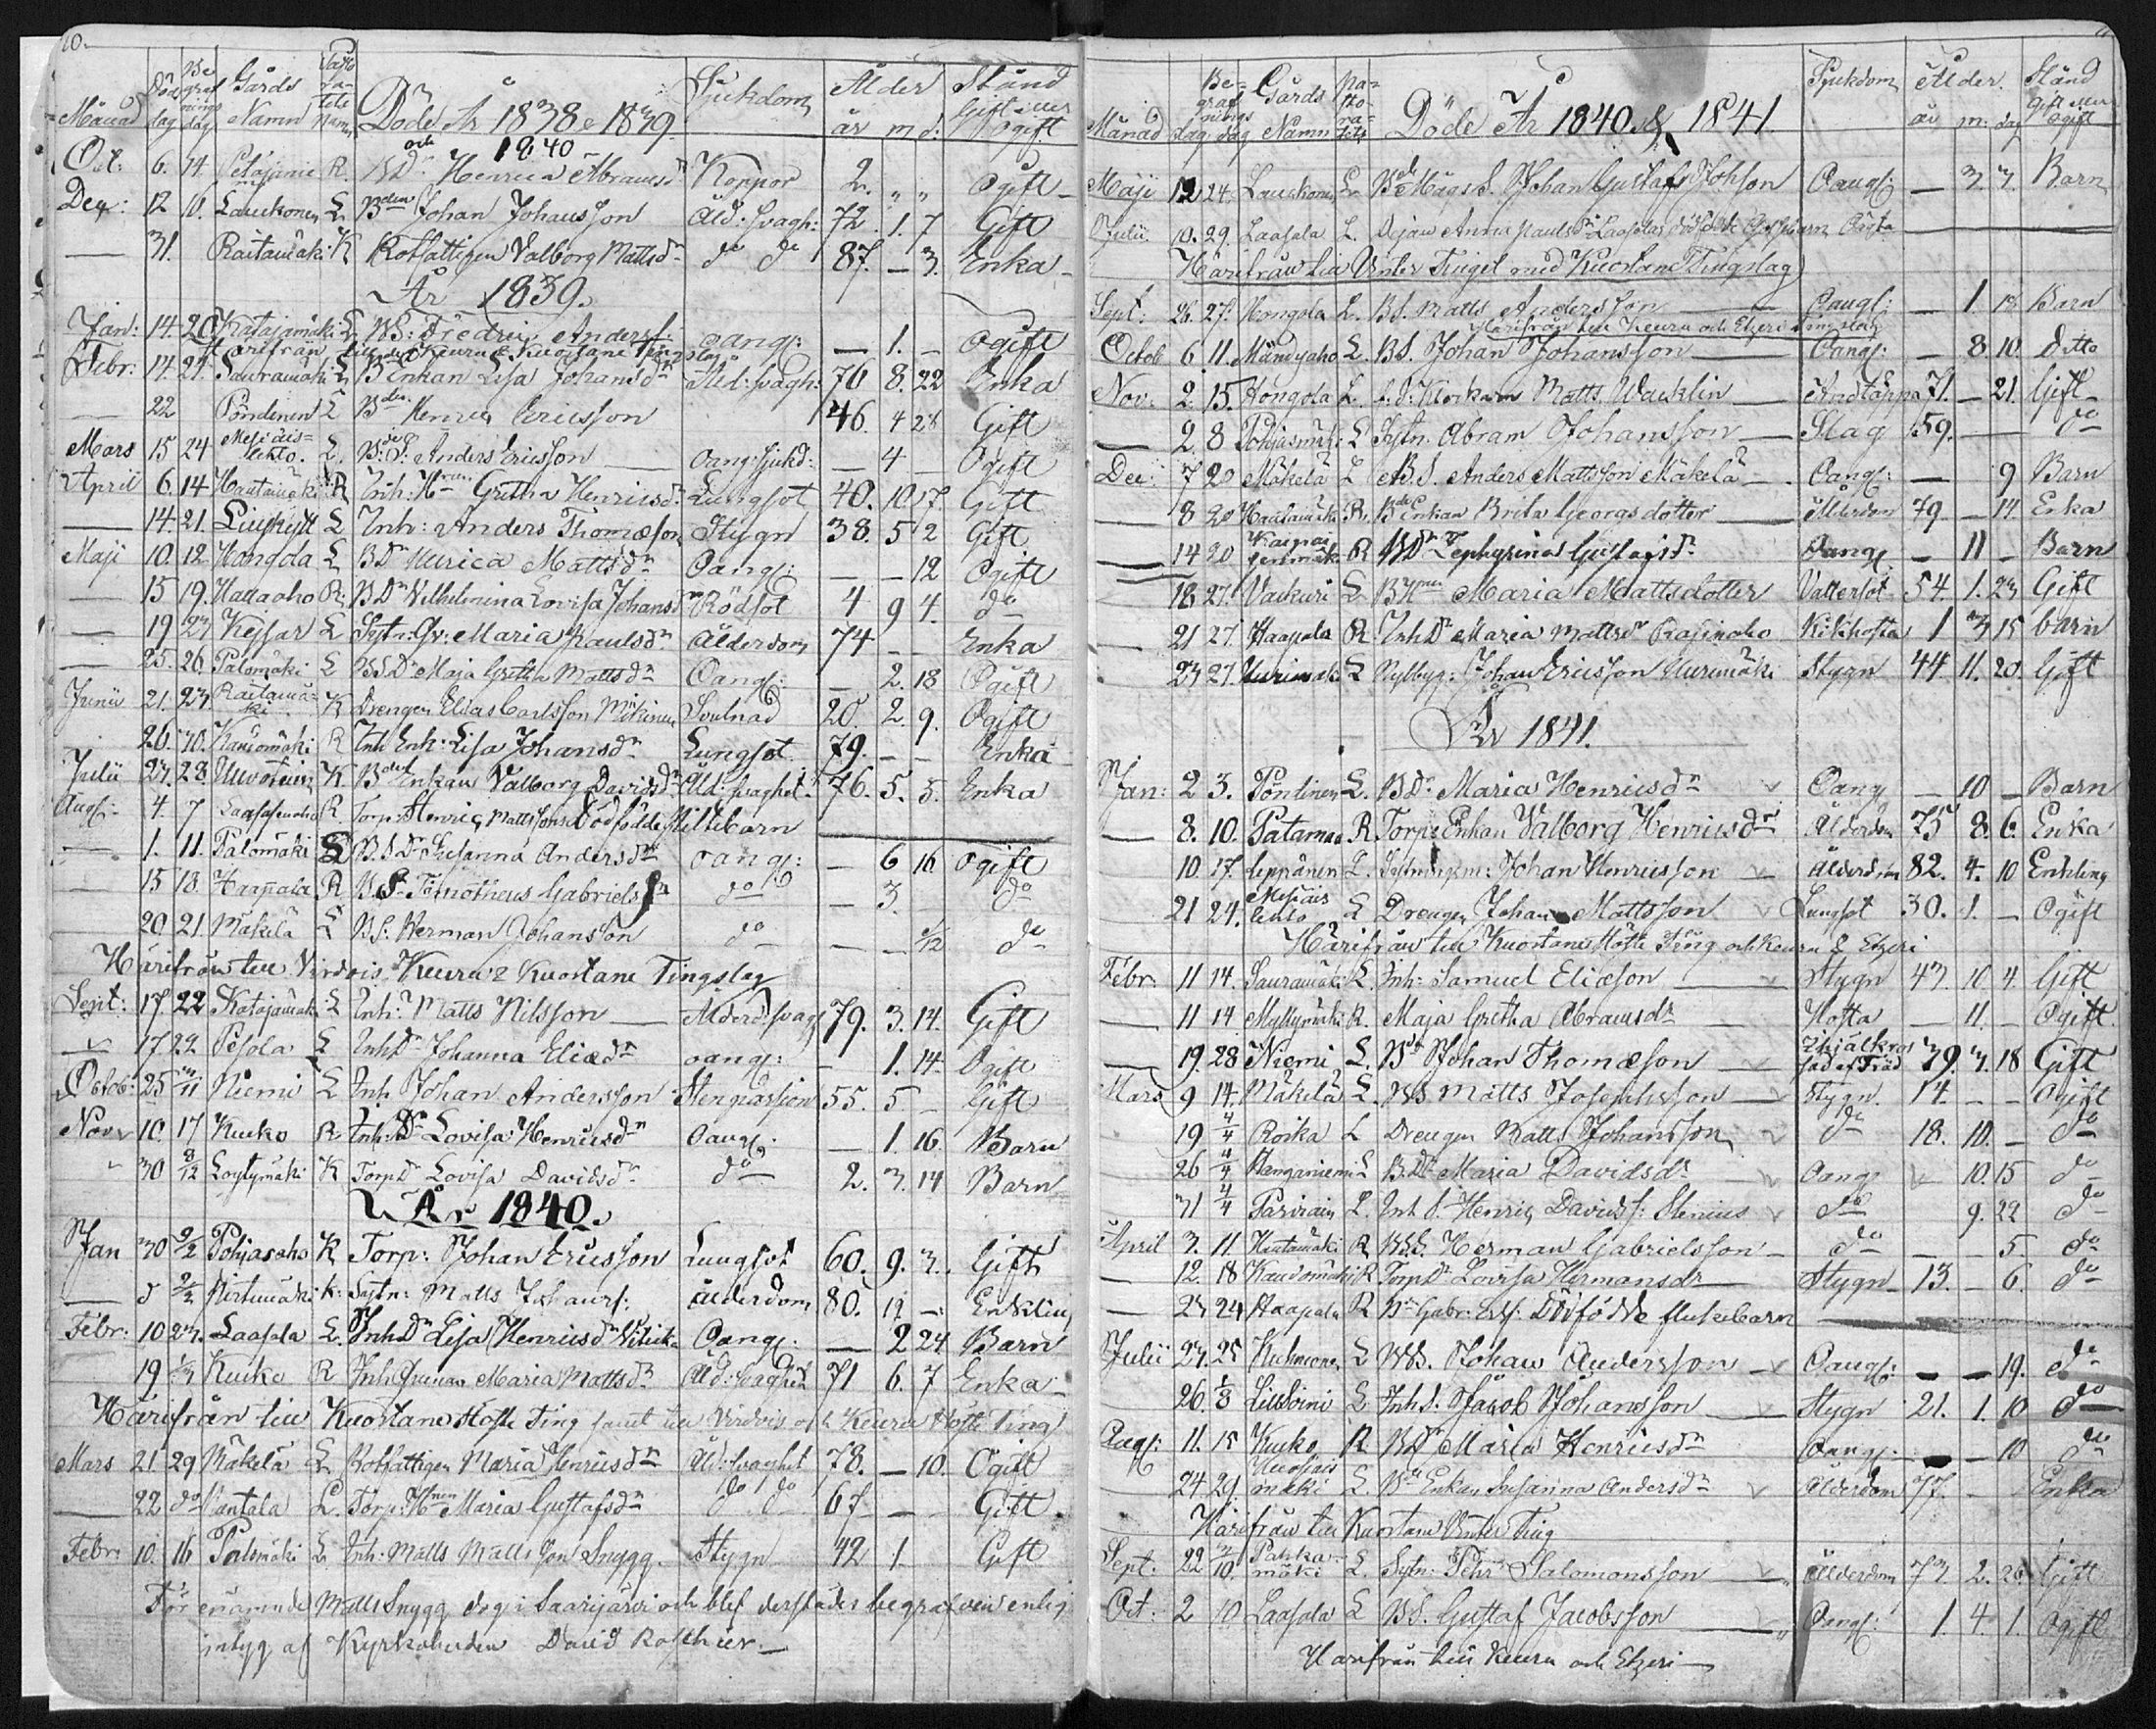 10.
Månad Död dag Begrafnings dag Gårds Namn Döde År 1838 & 1839 och 1840 Sjukdom Ålder år m d: Stånd Gift eller ogift
Oct: 6. 14. Petäjäniemi R. BDr Henrica Abramsdr Koppor 2. " " Ogift
Dec: 12 16. Lauckonen L Bden Johan Johansson Åld: svagh: 72. 1. 7 Gift
— 31. Raitamäki K Rotfattigen Valborg Mattsdr do do 87. — 3. Enka
År 1839.
Jan: 14 20 Katajamäki L BS: Fredric Andersf: oang: — 1. — Ogift
Härifrån till Keuru & Kuortane Tingslag
Febr: 14. 24. Sauramäki L B Enkan Lisa Johansdr Åld: svagh: 76 8. 22 Enka
— 22 Pöndinen L Bden Henric Ericsson 46. 4 28 Gift
Mars 15 24 Mesiäislehto. L. BdeS: Anders Ericsson oang: sjukd: — 4 — Ogift
April 6. 14 Hautamäki R Inh: Hrun Gretha Henricsdr Lungsot 40. 10 17. Gift
— 14. 21. Liuskell L Inh: Anders Thomæson Stygn 38. 5 2 Gift
Maji 10. 12. Hongola L BDr Henrica Mattsdr Oang: — — 12 Ogift
— 15 19. Haaaho R. BDr Vilhelmina Lovisa Johansdr Rödsot 4 9 4. do
— 19 23 Kejsar L Sytn: Gu: Maria Paulsdr Ålderdom 74 — — Enka
— 25. 26. Palomäki L BSDr Maja Gretha Mattsdr Oang: — 2. 18 Ogift
Junii 21. 23. Raitamäki K Drengen Elias Carlsson Mikinen Svulnad 20. 2. 9. Ogift
26. 30. Kaudomäki R Inh Enk: Lisa Johansdr Lungsot 79. — — Enka
Julii 27. 28. K. Bdes Enkan Valborg Davidsdr Åld: svaghet: 76. 5. 5. Enka
Aug: 4. 7 R. Torp: Henric Mattsons Dödfödde Piltebarn
— 1. 11. Palomäki L B.S.Dr Susanna Andersdr oang: — 6 16 Ogift
— 15 18. Haapala R BS. Timotheus Gabrielsson do — 3. do
20 21. Mäkelä L BS: Herman Johansson do — do
Härifrån till Virdois, Keuru & Kuortane Tingslag
Sept: 17. 22 Katajamäki L Inh: Matts Nilsson — Ålderd: svagh 79. 3. 14. Gift
17 22. Pesola L InhDr Johanna Eliædr oang: — 1. 14. Ogift
Octob: 25 3/11 Niemi L Inh Johan Andersson Stenpassion 55. 5. — Gift
Nov 10. 17 Kucko R Inh: Dr Lovisa Henricsdr Oang: — 1. 16. Barn
" 30 8/12 Löytymäki K TorpDr Lovisa Davidsdr do 2. 3. 14 Barn
År 1840.
Jan 30 9/2 Pohjasaho K Torp: Johan Ericsson Lungsot 60. 9. 3. Gift
— d 9/2 Hirtimäki K. Sytn: Matts Johansf: ålderdom 80. 12 — Enkling
Febr: 10 23. Laasala L. InhDr Lisa Henricsdr Oang: — 2 24 Barn
19 1/3 Kucko R Inh Maria Mattsdr Åld: svaghet 71 6. 7 Enka
Härifrån till Kuortane Höste Ting samt till Virdois och Keuru Höste Ting
Mars 21. 29 Mäkelä L Rotfattigen Maria Henricsdr Åld: svaghet 78. — 10. Ogift
— 22 do Vantala L Torp: Hrun Maria Gustafsdr do do 67 — — Gift.
Febr: 10. 16 Palomäki L Inh: Matts Mattsson Snygg. Stygn 42 1 Gift
Förenämnde Matts Snygg dog i Saarijärvi och blef derstädes begrafven enligt
intyg af Kyrkoherden David
Månad dag Begrafnings dag Gårds Namn Döde År 1840 & 1841. Sjukdom Ålder. år m: dag Stånd Gift eller Ogift
Maji 12 24. Lauckonen L Bde Mågs S. Johan Gustaf Johsson Oang: — 3. 3. Barn
Julii 10. 29. Laasala L. Pojan Anders Laasalas dödfödde Barn
Härifrån till Vinter Tinget med Kuortane Tingslag
Sept: 26. 27. Hongola L. BS. Matts Andersson — Oang: — 1. 18 Barn
Härifrån till Keuru och Etzeri Tingslag
Octob 6 11. Mändyaho L. BS. Johan Johansson — Oang: — 8 10. ditto
Nov: 2. 15. Hongola L. f.d. Klockarn Matts Wacklin — Andtäppa 71. — 21. Gift
— 2 8 Pohjasmäki L Sytn: Abram Johansson — Slag 59. — do
Dec: 7 20 Mäkelä L B.S. Anders Mattsson Mäkelä — Oang: — 9 Barn
— 8 20 Hautamäki R. Bde Enkan Brita Georgsdotter — Ålderdom 79 — 14 Enka
— 14 20 R BDr Zephyrina Gustafsdr Oang: — 11 — Barn
18 27. Vackuri L BHrun Maria Mattsdotter Vattersot 54. 1. 23 Gift
21 27 Haapala R. InhDr Maria Mattsdr Rasinaho Kikhosta 1 3 15 barn
23 27. Uurimäki L Nybyg: Johan Ericsson Uurimäki Stygn 44 11. 20. Gift
År 1841.
Jan: 2 3. Pöntinen L. BDr Maria Henricsdr Oang — 10 — Barn
— 8. 10. Patamaa R. Torp: Enkan Valborg Henricsdr Ålderdom 75 8. 6. Enka
10. 17. Leppänen L. Sytningsm: Johan Henricsson Ålderdom 82. 4. 10 Enkling
21 24. Mesiäislehto L Drengen Johan Mattsson Lungsot 30. 1. — Ogift
Härifrån till Kuortane Höste Ting och Keuru & Etzeri
Febr. 11 14. Sauramäki L. Inh: Samuel Eliæson — Stygn 43. 10 4. Gift
— 11 14 Myllymäki R. Maja Gretha Abramsdr — Hosta — 11. — Ogift.
— 19. 28 Niemi L. Bd Johan Thomæson Ihjälkrossad af Träd 39. 3. 18 Gift
Mars 9 14. Mäkelä L. BS Matts Josephsson — Stygn. 14. — — Ogift
19 4/4 Roika L Drengen Matts Johansson do 18. 10. — do
26 4/4 Hanganiemi L BDr Maria Davidsdr Oang 10. 15 do
31 4/4 L. Inh S. Henric Davidsf: Stenius do 9. 22 do
April 3. 11. Hautamäki R BSS. Herman Gabrielsson — do — — 5. do
— 12. 18 Kaudomäki R TorpDr Lovisa Hermansdr Stygn 13. — 6. do
— 23 24 Haapala R Bn Gabr: Esf: Dödfödde flickebarn
Julii 23. 25 Huhmonen L BS. Johan Andersson — Oang: — — 19. do
26. 1/8 Lillsoini L Inh S. Jacob Johansson — Stygn 21. 1. 10 do
Aug: 11. 15 Kucko R BDr Maria Henricsdr Oang: — — 10 do
24. 29. L. Bde Enkan Susanna Andersdr Ålderdom 77. — Enka
Härifrån till Kuortane Vinter Ting
Sept. 22 3/10. Pahkamäki L. Sytn: Pehr Salomonsson — Ålderdom 73. 2. 26. Gift
Oct: 2 10 Laasala L BS. Gustaf Jacobsson — Oang: 1. 4. 1. Ogift
Härifrån till Keuru och Etzeri —